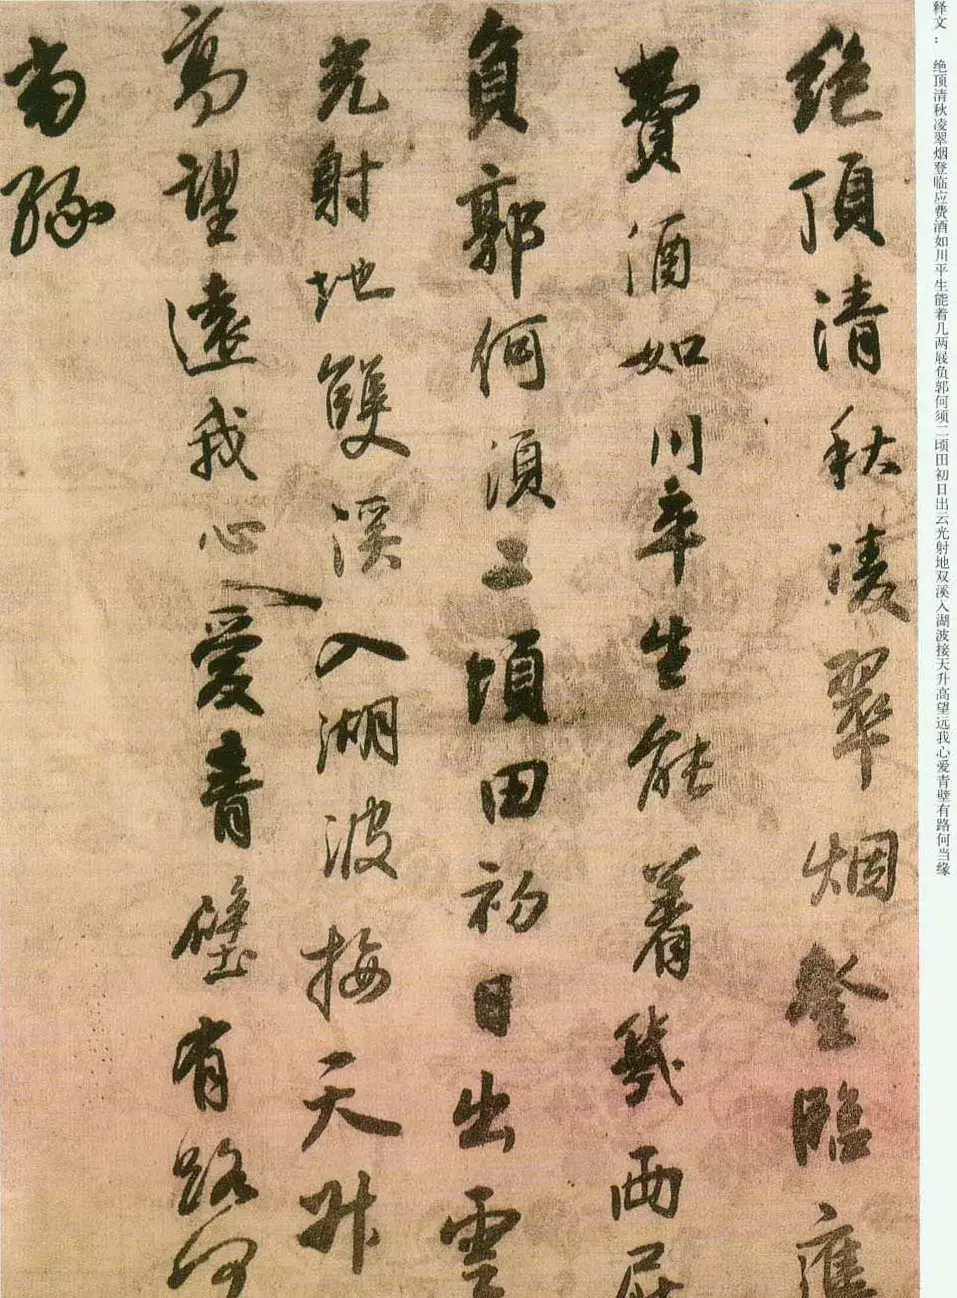 释文: 绝顶清秋凌翠烟登临应费酒如川平生能着几两屐负郭何须二顷田初日出云光射地双溪入湖波接天升高望远我心爱青壁有路何当缘
絶頂清秋凌翠烟登臨應
費酒如川平生能着幾兩屐
負郭何須二頃田初日出雲
光射地雙溪入湖波接天升
高望遠我心愛青壁有路何
當緣